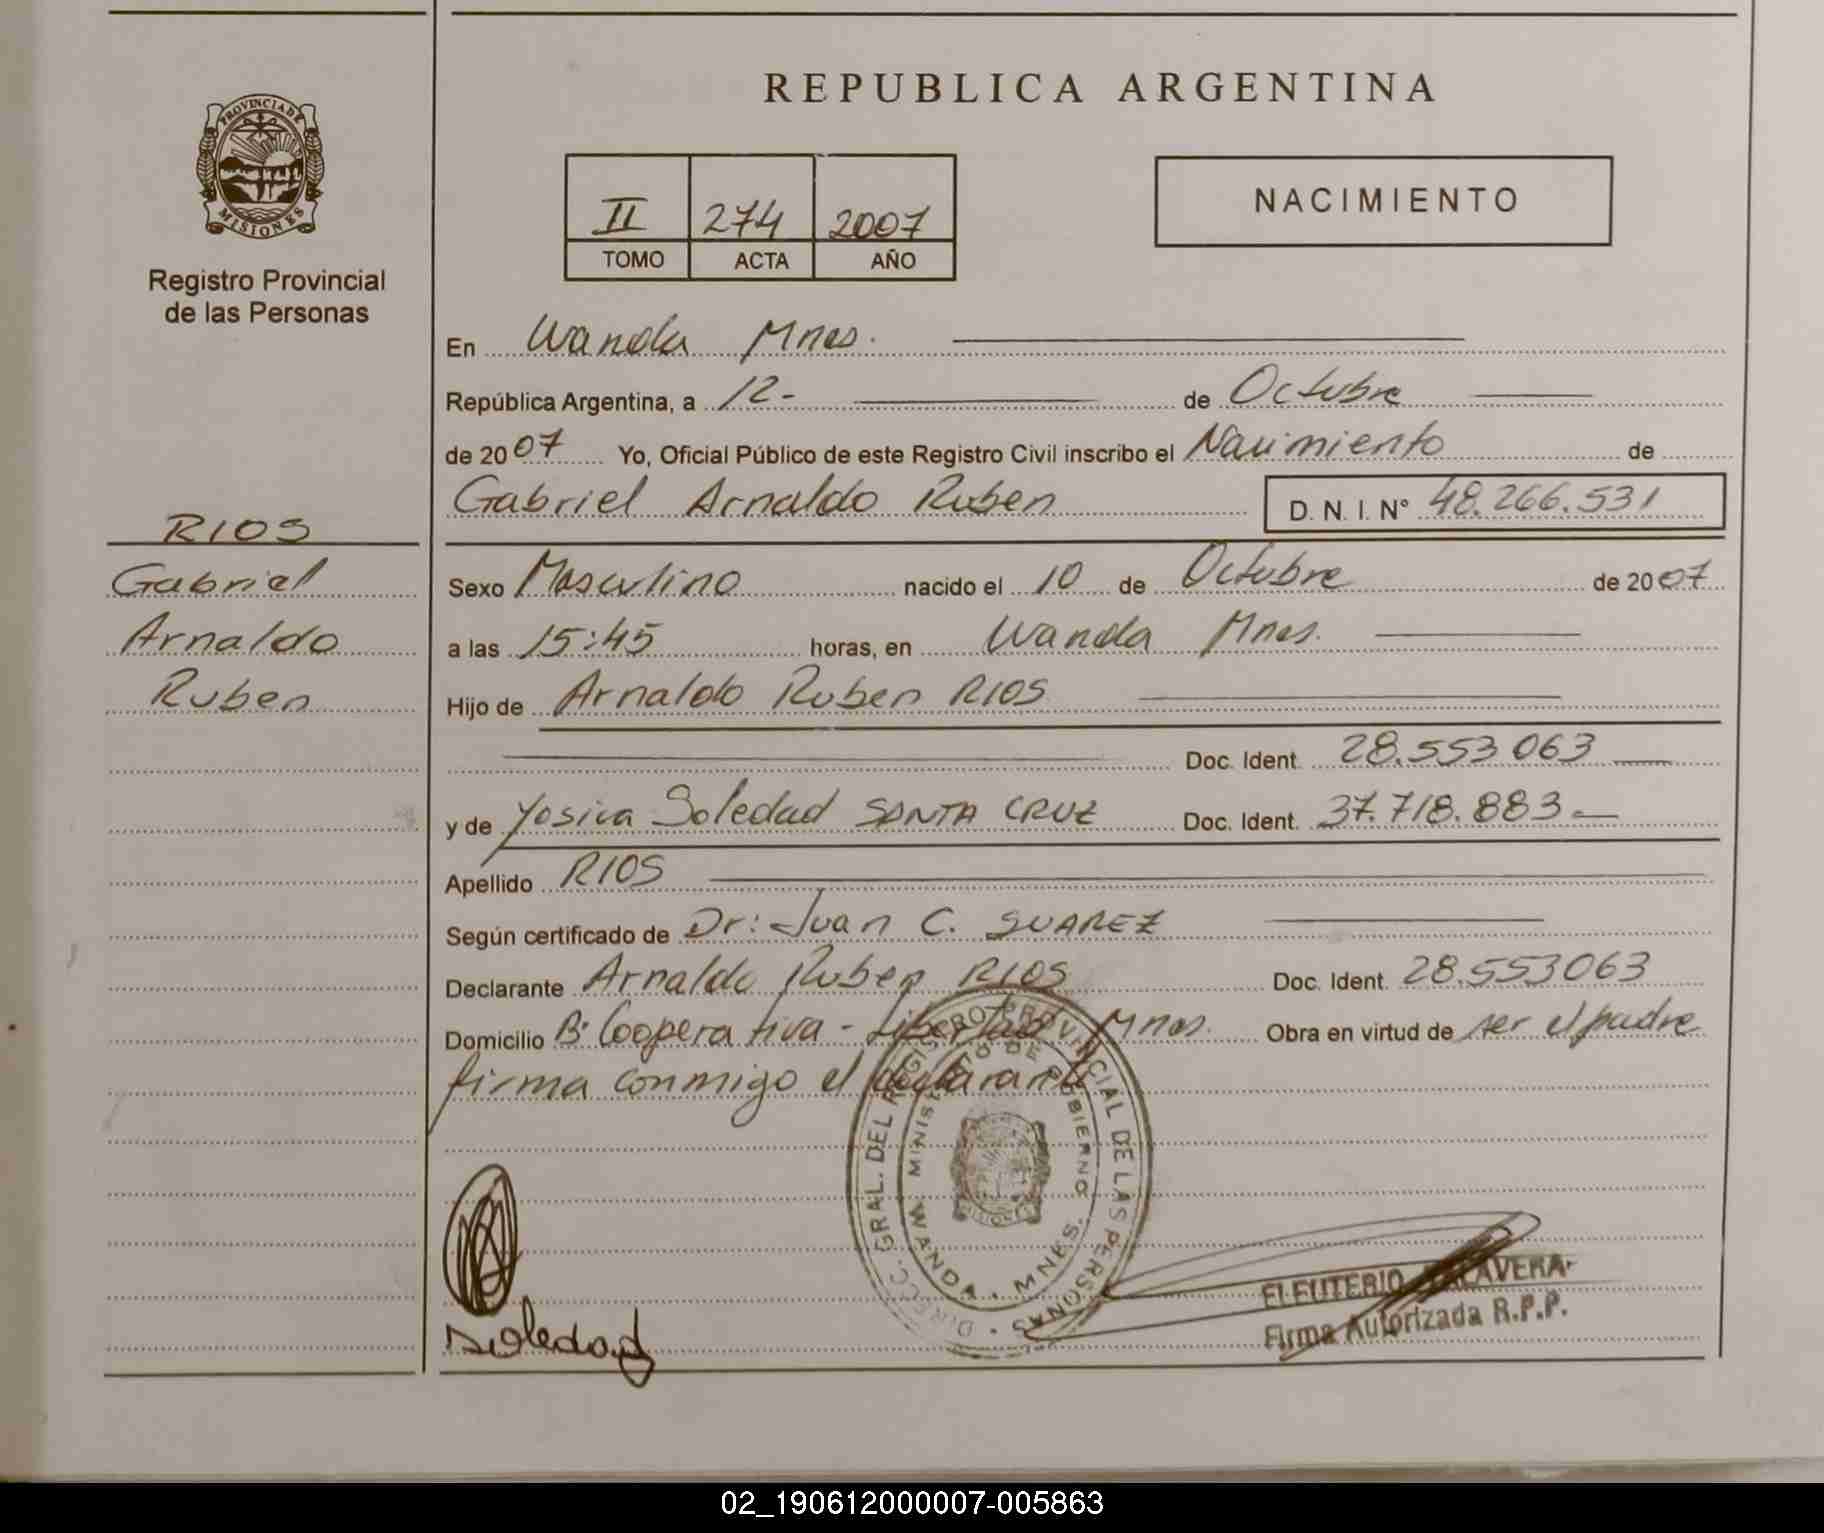 REPUBLICA ARGENTINA
PROVINCIA DE
MISIONES
Registro Provincial
de las Personas
II 274 2007
TOMO ACTA AÑO
NACIMIENTO
En Wanda Mnes.
República Argentina, a 12- de Octubre
de 2007 Yo, Oficial Público de este Registro Civil inscribo el Nacimiento de
Gabriel Arnaldo Ruben D. N. I. N° 48.266.531
RIOS
Gabriel
Arnaldo
Ruben
Sexo Masculino nacido el 10 de Octubre de 2007
a las 15:45 horas, en Wanda Mnes.
Hijo de Arnaldo Ruben RIOS
Doc. Ident. 28.553.063
y de Yosica Soledad SANTA CRUZ Doc. Ident. 37.718.883
Apellido RIOS
Según certificado de Dr: Juan C. SUAREZ
Declarante Arnaldo Ruben RIOS Doc. Ident. 28.553063
Domicilio B° Cooperativa - Libertad Mnes. Obra en virtud de ser el padre
firma conmigo el declarante
DIRECC. GRAL. DEL REGISTRO PROVINCIAL DE LAS PERSONAS
MINISTERIO DE GOBIERNO
WANDA - MNES.
Soledad
ELEUTERIO TALAVERA
Firma Autorizada R.P.P.
02_190612000007-005863